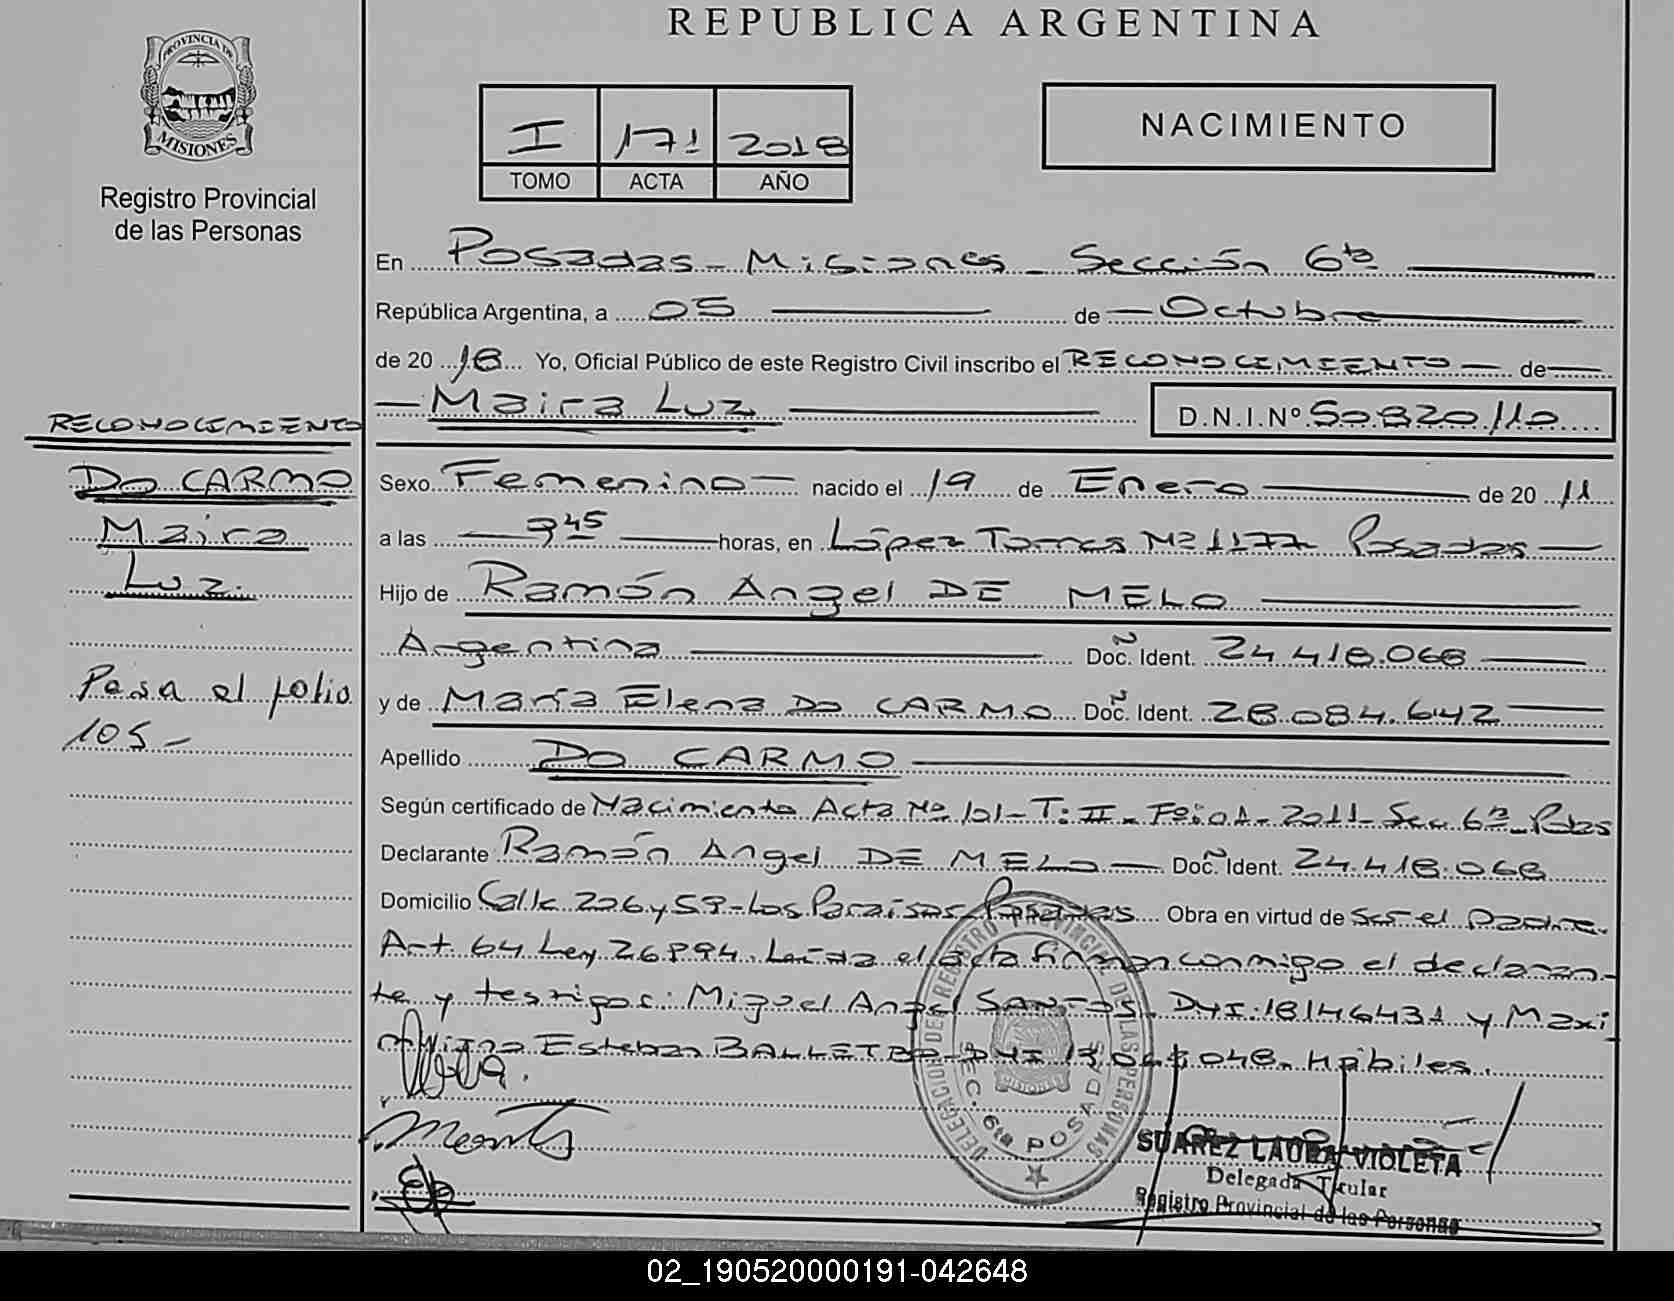 REPUBLICA ARGENTINA
PROVINCIA DE
MISIONES
Registro Provincial
de las Personas
I 171 2018
TOMO ACTA AÑO
NACIMIENTO
En Posadas - Misiones - Sección 6ta
República Argentina, a 05 de Octubre
de 20 18 Yo, Oficial Público de este Registro Civil inscribo el RECONOCIMIENTO de
Maira Luz D.N.I.Nº 50.820.110
RECONOCIMIENTO
DO CARMO
Maira
Luz.
Pasa al folio
105-
Sexo Femenino nacido el 19 de Enero de 20 11
a las 9 45 horas, en López Torres Nº 1177 Posadas
Hijo de Ramón Angel DE MELO
Argentina Doc. Ident. 24.418.068
y de María Elena DO CARMO Doc. Ident. 28.084.642
Apellido DO CARMO
Según certificado de Nacimiento Acta Nº 101- T: II - Fº: 01 - 2011- Sec. 6ta - Pdas
Declarante Ramón Angel DE MELO Doc. Ident. 24.418.068
Domicilio Calle 226 y 59 - Los Paraisos Posadas Obra en virtud de Ser el Padre.
Art. 64 Ley 26994. Leída el acta firman conmigo el declaran-
te y testigos: Miguel Angel SANTOS DNI: 18146431 y Maxi
miliano Esteban BALLETBO - DNI Hábiles.
DELEGACION DEL REGISTRO PROVINCIAL DE LAS PERSONAS
SEC. 6ta POSADAS
SUAREZ LAURA VIOLETA
Delegada Titular
Registro Provincial de las Personas
02_190520000191-042648